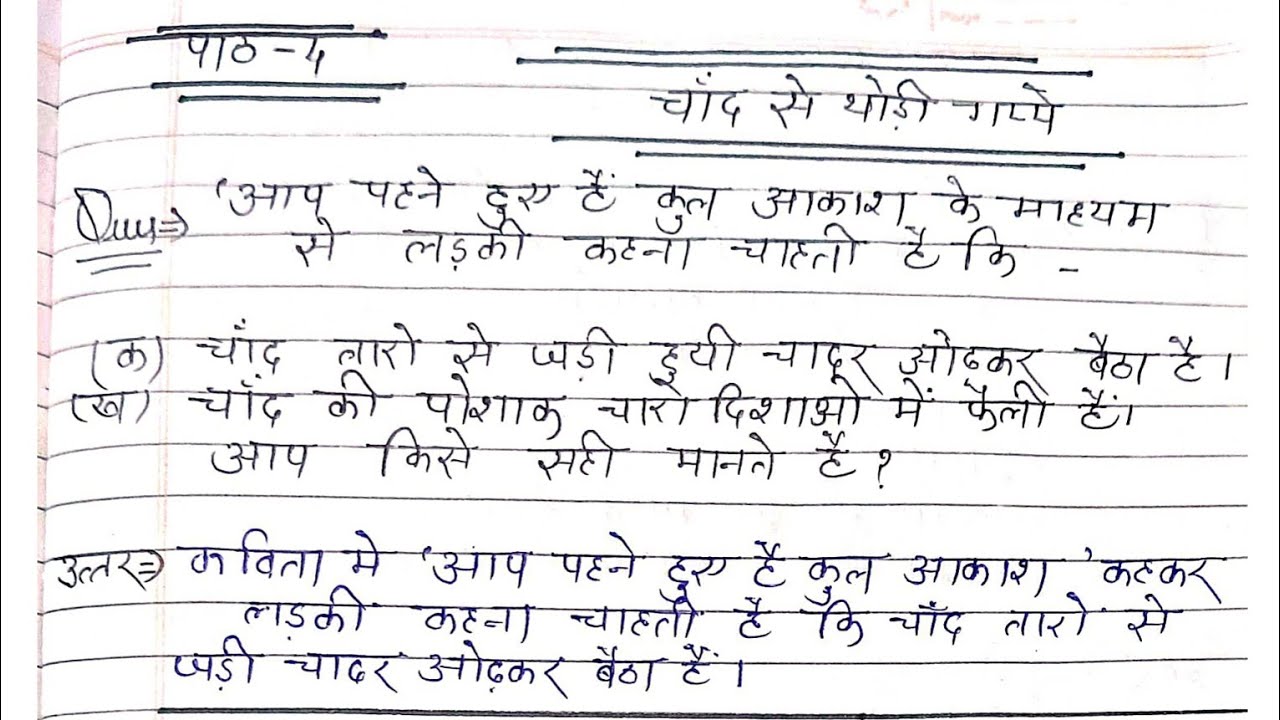 पाठ - 4
चाँद से थोड़ी गप्पे
Que⇒ 'आप पहने हुए हैं कुल आकाश के माध्यम
से लड़की कहना चाहती है कि -
(क) चाँद तारो से जड़ी हुयी चादर ओढ़कर बैठा है।
(ख) चाँद की पोशाक चारो दिशाओ में फैली हैं।
आप किसे सही मानते है ?
उत्तर⇒ कविता मे 'आप पहने हुए है कुल आकाश' कहकर
लड़की कहना चाहती है कि चाँद तारो से
जड़ी चादर ओढ़कर बैठा हैं।